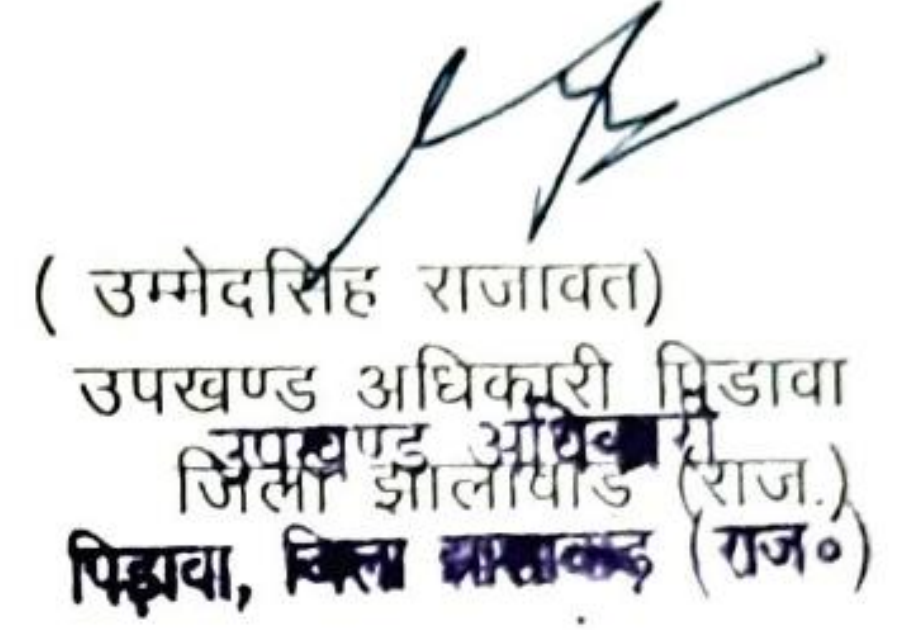 ( उम्मेदसिंह राजावत)
उपखण्ड अधिकारी पिडावा
उपखण्ड अधिकारी
जिला झालावाड (राज.)
पिड़ावा, जिला झालावाड़ (राज०)